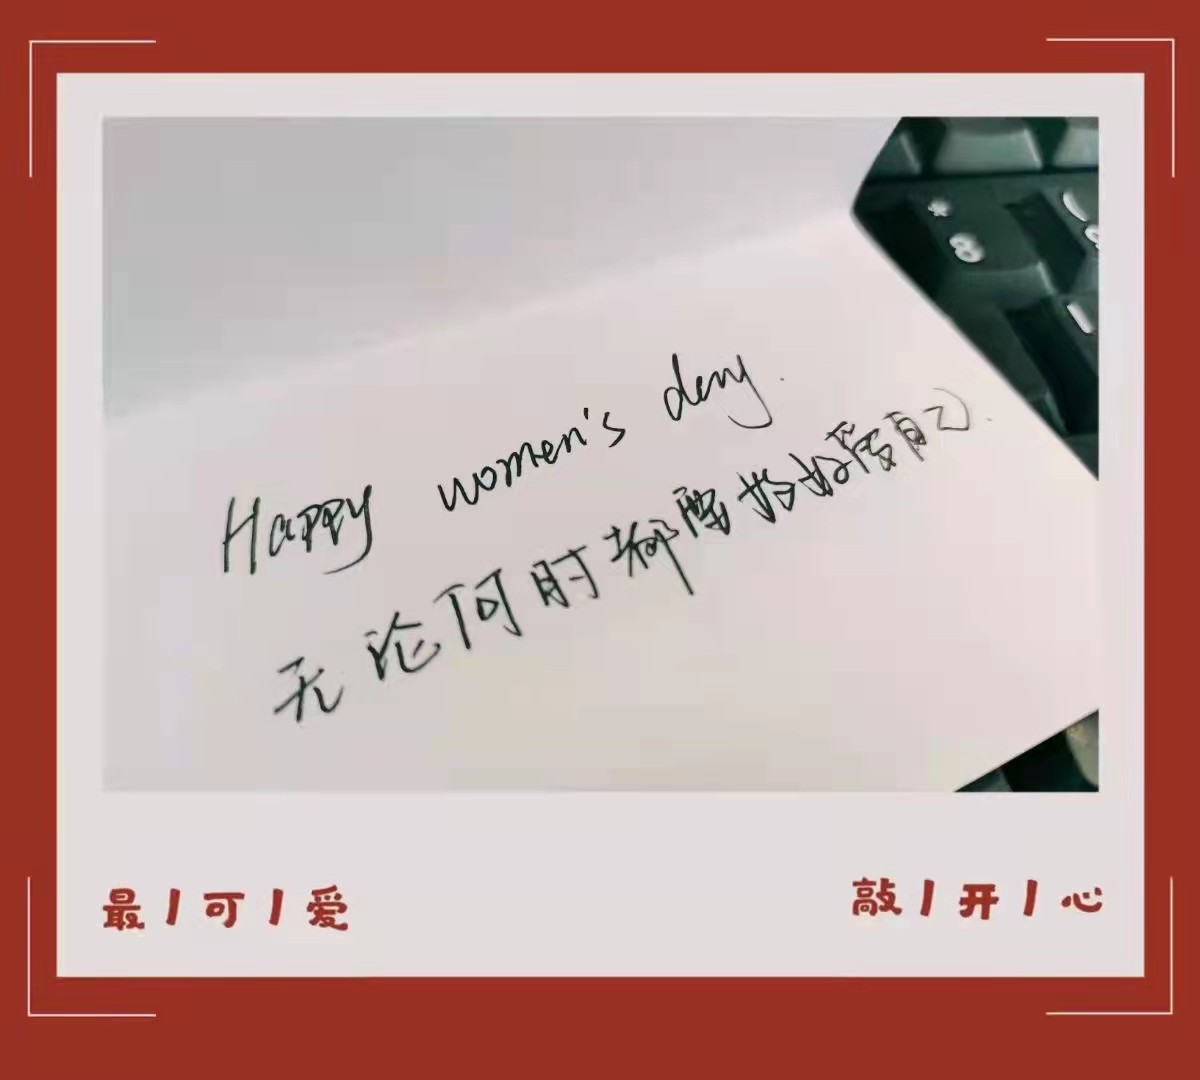 *
8
Happy women's day.
无论何时都要好好爱自己.
最丨可丨爱
敲丨开丨心